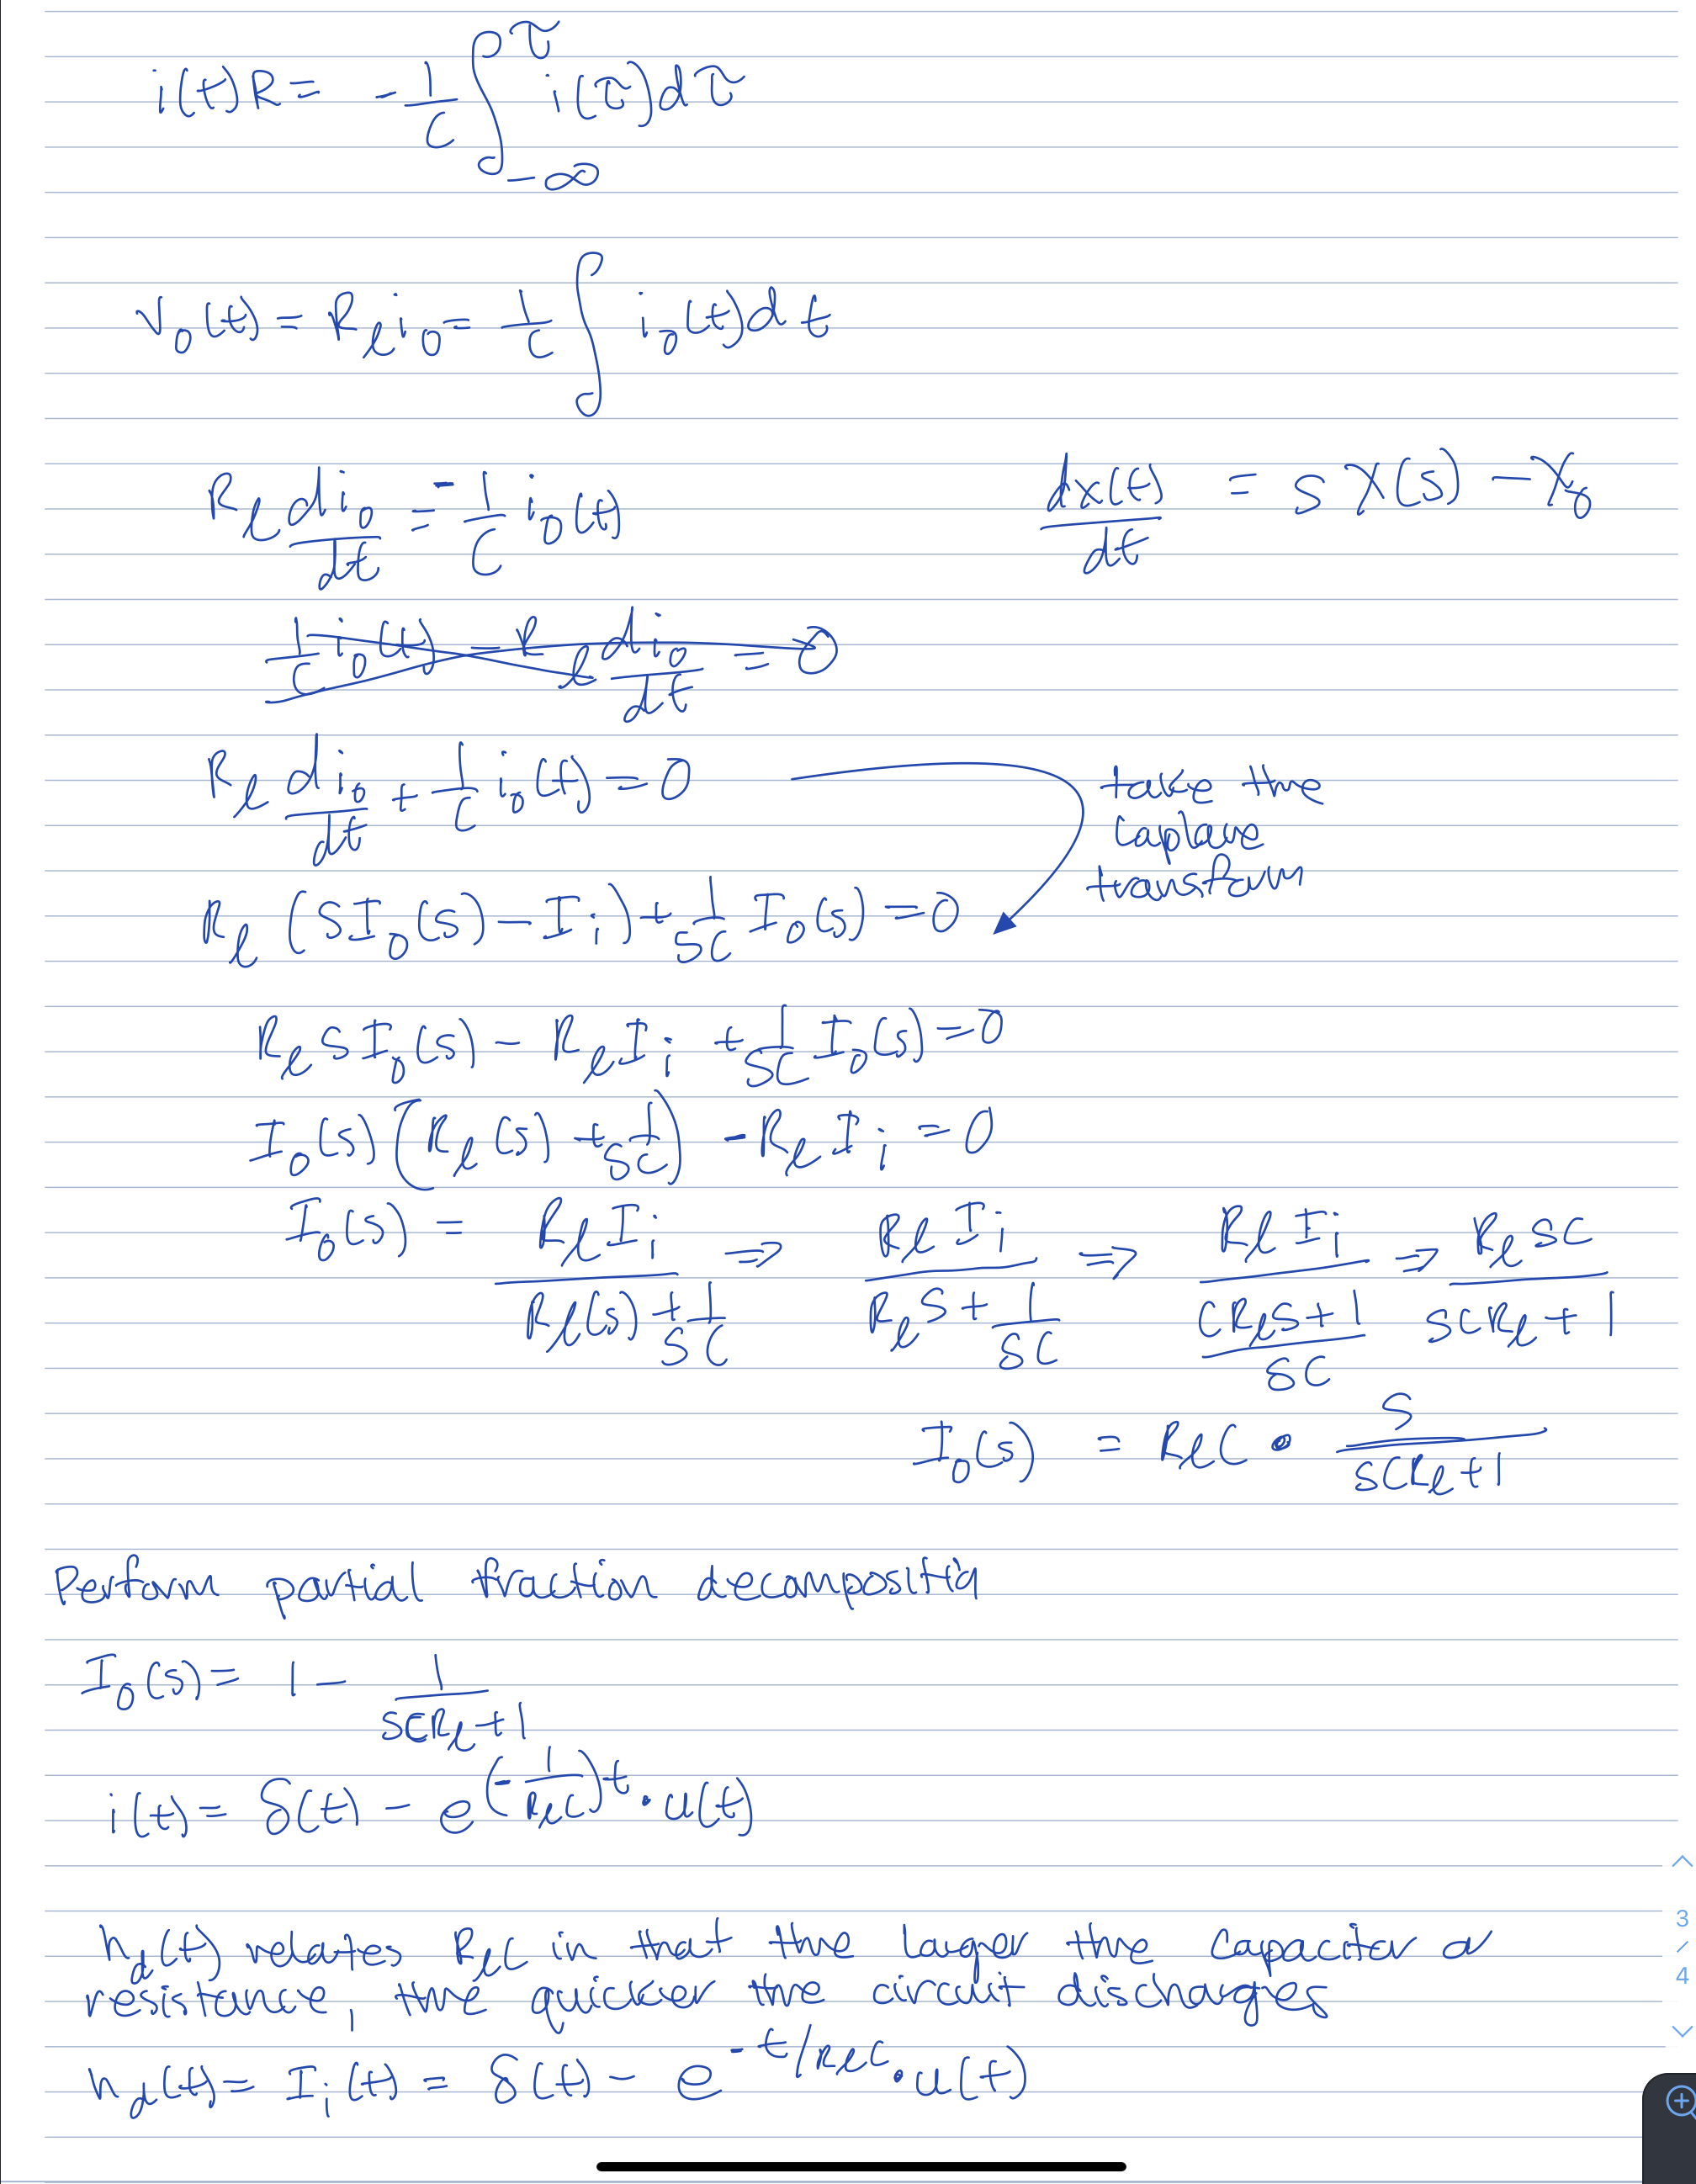 i(t)R = -1/C ∫_{-∞}^{τ} i(τ)dτ
v₀(t) = R_ℓ i₀ = 1/C ∫ i₀(t)dt
R_ℓ di₀/dt = -1/C i₀(t)
dx(t)/dt = sX(s) - X₀
1/C i₀(t) - R_ℓ di₀/dt = 0
R_ℓ di₀/dt + 1/C i₀(t) = 0
take the
Laplace
transform
R_ℓ (SI₀(s) - I_i) + 1/SC I₀(s) = 0
R_ℓ S I₀(s) - R_ℓ I_i + 1/SC I₀(s) = 0
I₀(s) (R_ℓ(s) + 1/SC) - R_ℓ I_i = 0
I₀(s) = R_ℓ I_i / (R_ℓ(s) + 1/SC) ⇒ R_ℓ I_i / (R_ℓ S + 1/SC) ⇒ R_ℓ I_i / ((CR_ℓS + 1)/SC) ⇒ R_ℓ SC / (SCR_ℓ + 1)
I₀(s) = R_ℓ C • S / (SCR_ℓ + 1)
Perform partial fraction decomposition
I₀(s) = 1 - 1/(SCR_ℓ + 1)
i(t) = δ(t) - e^{(-1/R_ℓC)t} • u(t)
h_d(t) relates R_ℓC in that the larger the capacitor or
resistance, the quicker the circuit discharges
h_d(t) = I_i(t) = δ(t) - e^{-t/R_ℓC} • u(t)
3
/
4